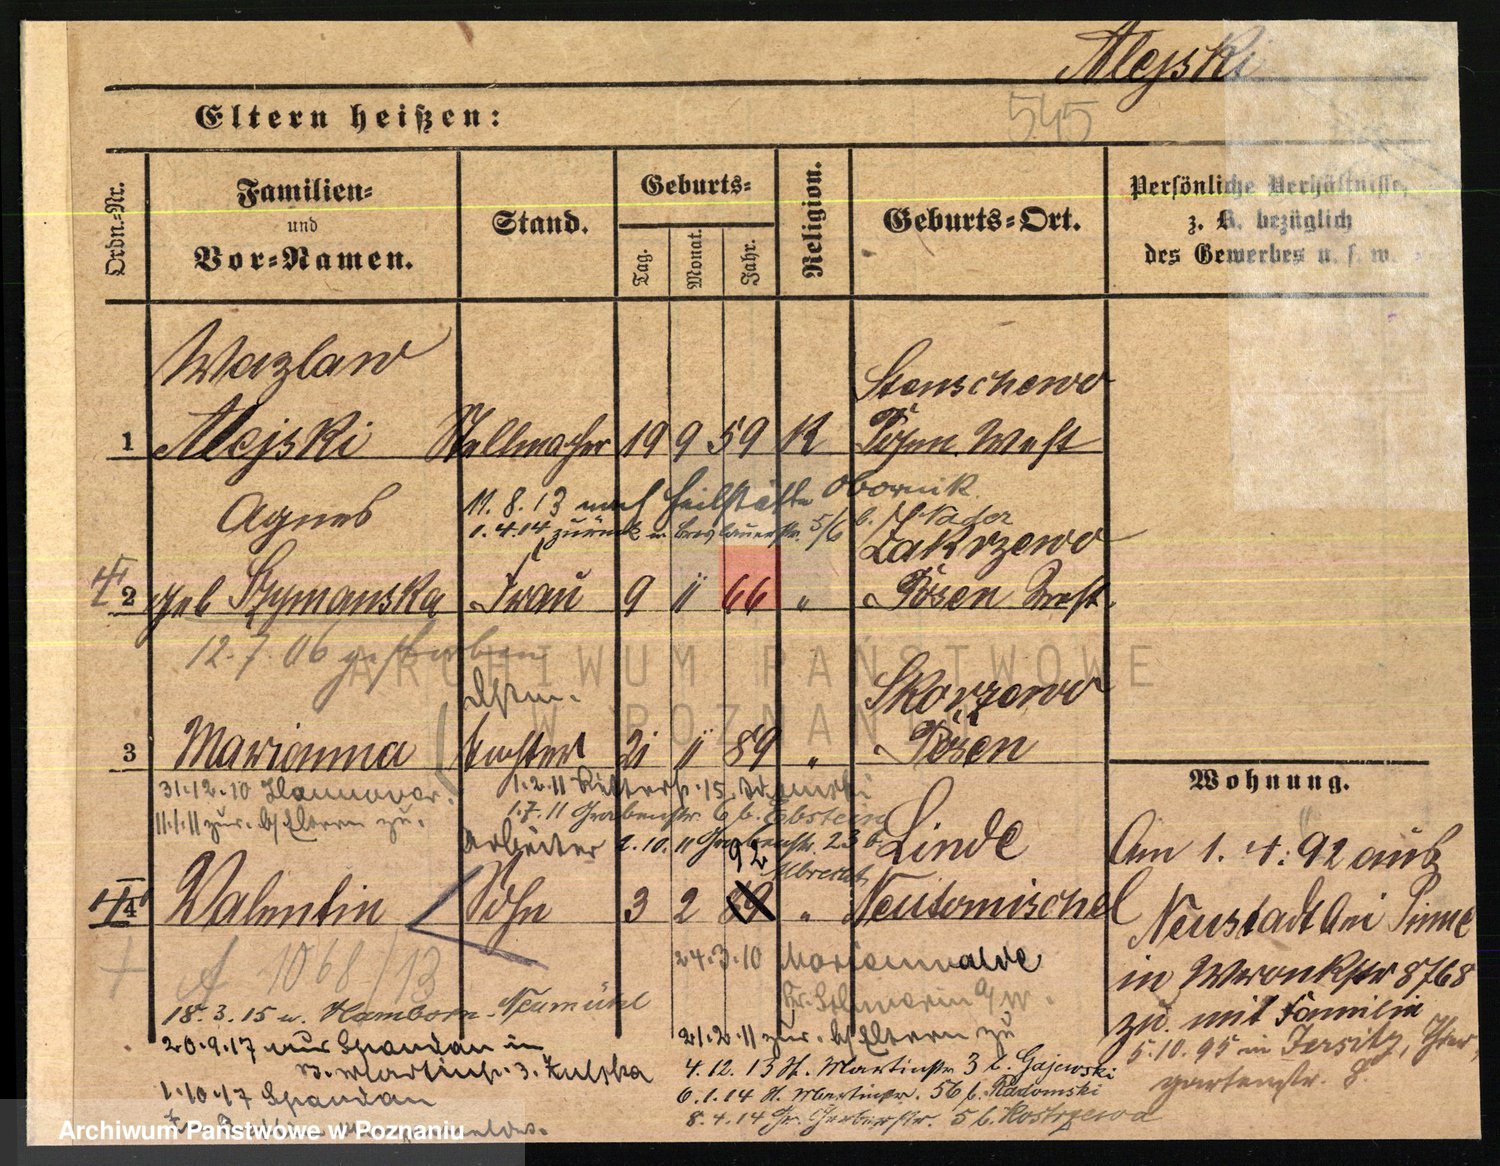 Alejski
545
Eltern heißen:
Ordn.-Nr.
Familien-
und
Vor-Namen.
Stand.
Geburts-
Tag.
Monat.
Jahr.
Religion.
Geburts-Ort.
Persönliche Verhältnisse,
z. B. bezüglich
des Gewerbes u. s. w.
Wazlaw
Stenschewo
1 Alejski Stellmacher 19 9 59 K Posen West
Agnes
11. 8. 13 nach Heilstätte Obornik
1. 4. 14 zurück u. Breslauerstr. 5/6 b.
Zakrzewo
2 geb Szymanska Frau 9 11 66 " Posen West.
12. 7. 06 gestorben
Skorzewo
3 Marianna Tochter 21 11 89 " Posen
31.12.10 Hannover.
1.2.11 Ritterstr. 15
11.1.11 zur. b/Eltern zu.
1.7.11 Grabenstr. 6 b. Ebstein
Arbeiter
2.10.11 Grabenstr. 23 b
Albrecht
92
Linde
4 Valentin Sohn 3 2 89 " Neutomischel
A 1068/13
24.3.10 Marienwalde
18. 3. 15 u. Hamborn-Neumühl
21.2.11 zur. b/Eltern zu
20.9.17 aus Spandau in
St. Martinstr. 3.
4. 12. 13 St. Martinstr 3 b. Gajewski
6. 1. 14 St. Martinstr. 56 b. Radomski
1.10.17 Spandau
8. 4. 14 Gr. Gerberstr. 5 b. Kostrzewa
Wohnung.
Am 1. 4. 92 aus
Neustadt bei Pinne
in Wronkstr 8768
zu. mit Familie
5.10.95 in Jersitz, Thier
gartenstr. 8.
ARCHIWUM PAŃSTWOWE
W POZNANIU
Archiwum Państwowe w Poznaniu